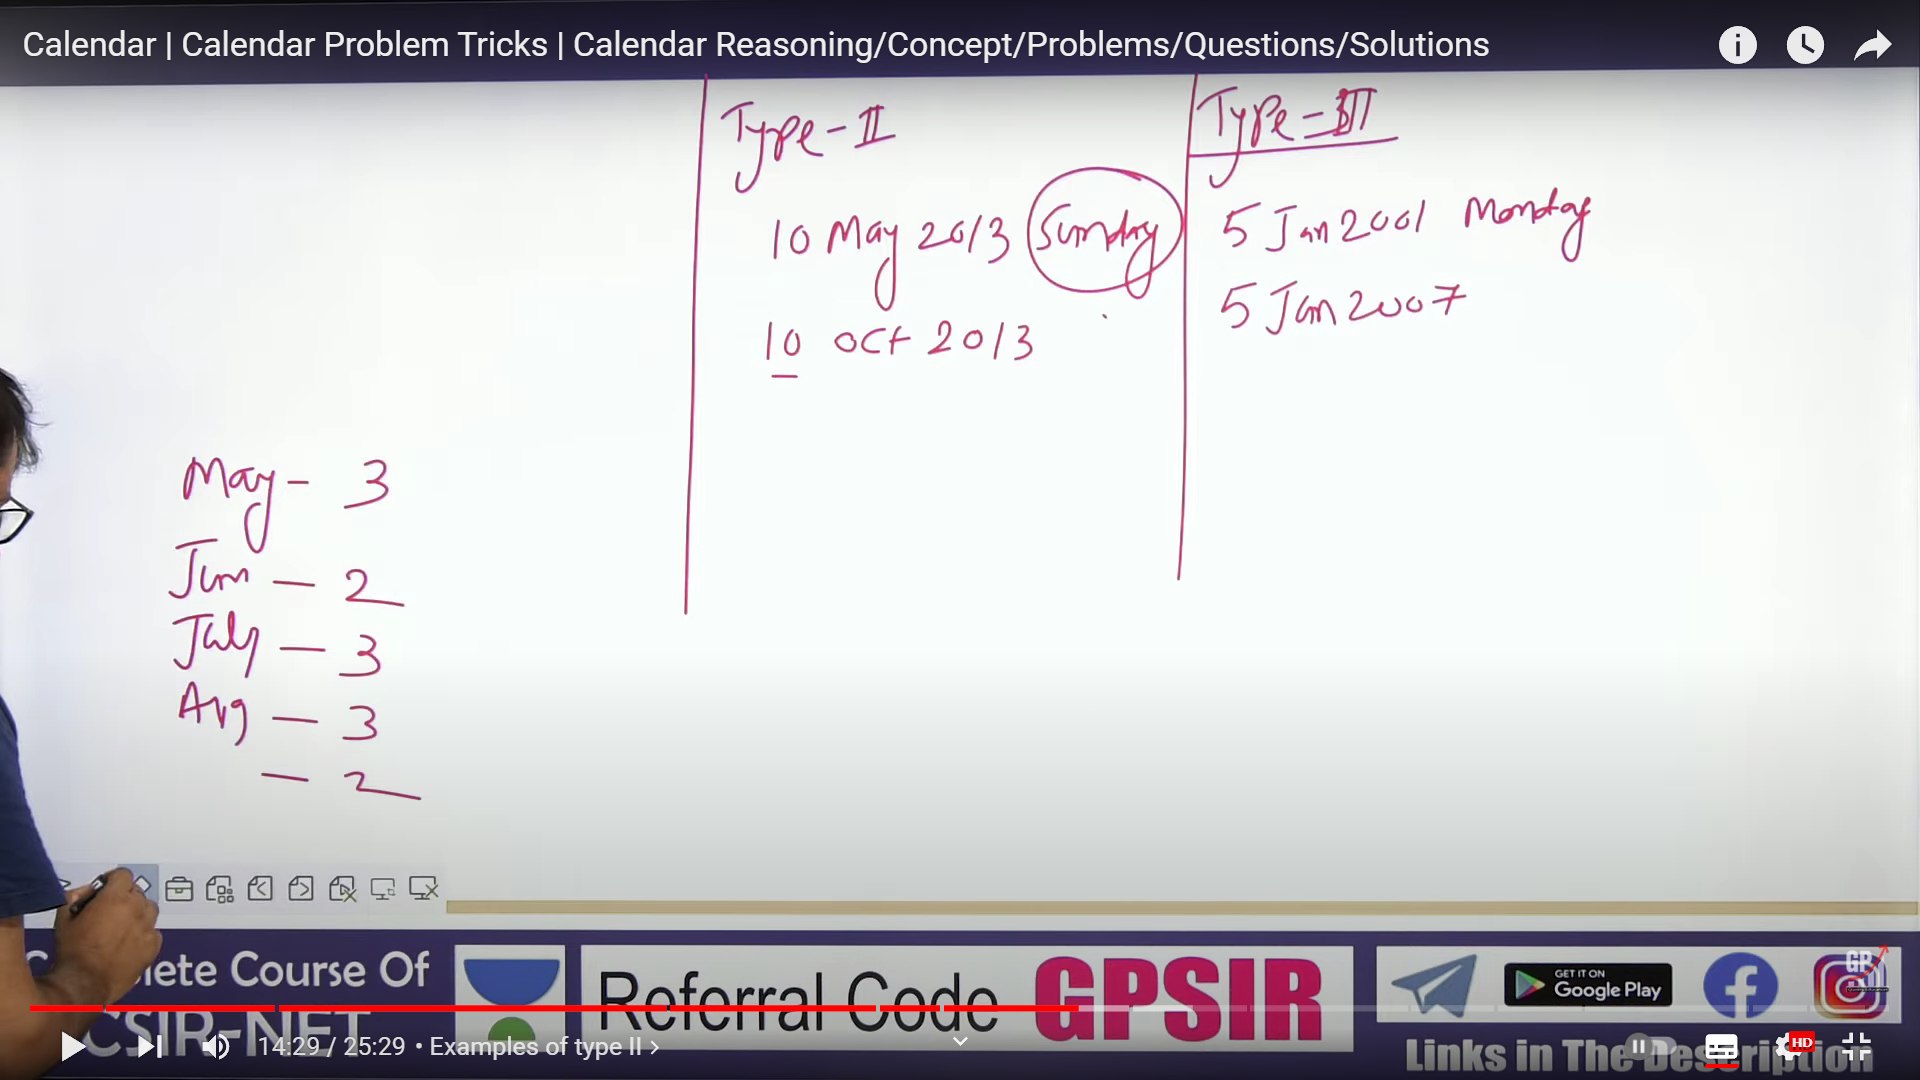 Calendar | Calendar Problem Tricks | Calendar Reasoning/Concept/Problems/Questions/Solutions
Type-II
10 May 2013 Sunday
10 Oct 2013
Type-III
5 Jan 2001 Monday
5 Jan 2007
May - 3
Jun - 2
July - 3
Aug - 3
- 2
lete Course Of
CSIR-NET
Referral Code GPSIR
GET IT ON
Google Play
Links in The Description
14:29 / 25:29 • Examples of type II
HD